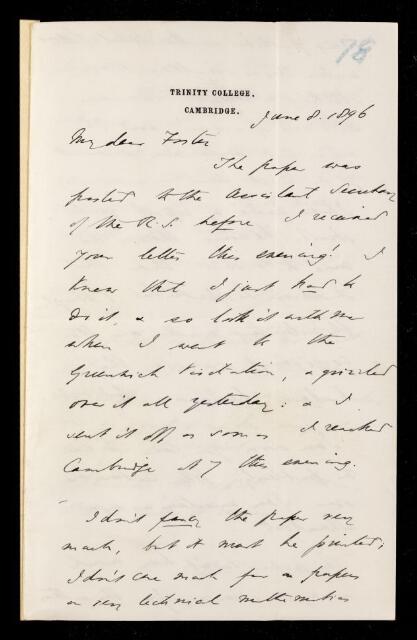 78
TRINITY COLLEGE.
CAMBRIDGE.
June 8. 1896
My dear Foster
The paper was
posted to the Assistant Secretary
of the R.S. before I received
your letter this evening! I
knew that I just had to
do it, & so took it with me
when I went to the
Greenwich Visitation, & grizzled
over it all yesterday: & I
sent it off as soon as I reached
Cambridge at 7 this evening.
I don't fancy the paper very
much, but it must be printed;
I don't care much for papers
on very technical mathematics